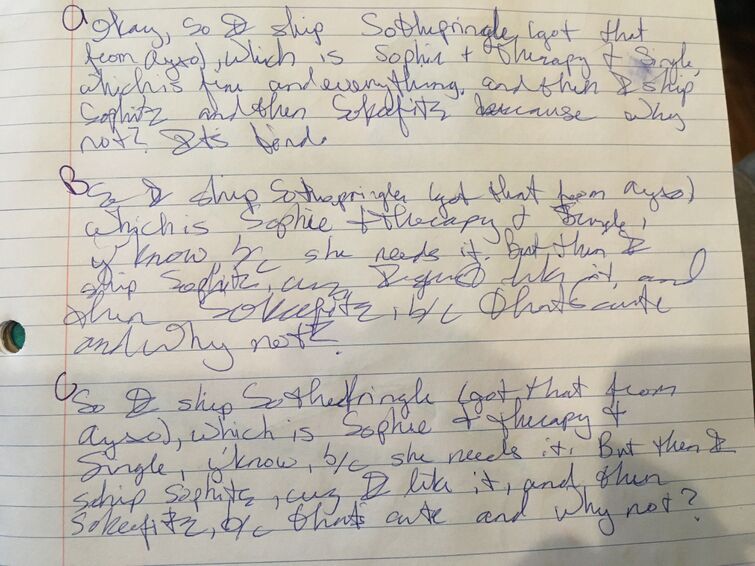 A Okay, so I ship Sothepringle (got that
from ayso), which is Sophie + therapy + Single,
which is fine and everything, and then I ship
Sophitz and then Sokeefitz because why
not? Its kinda
B So I ship Sothapringle (got that from ayso)
which is Sophie + therapy + Single,
y'know b/c she needs it. But then I
ship Sophitz, cuz I like it, and
then Sokeefitz, b/c thats cute
and why not?
C So I ship Sothepringle (got that from
ayso), which is Sophie + therapy +
Single, y'know, b/c she needs it. But then I
ship Sophitz, cuz I like it, and then
Sokeefitz, b/c that's cute and why not?